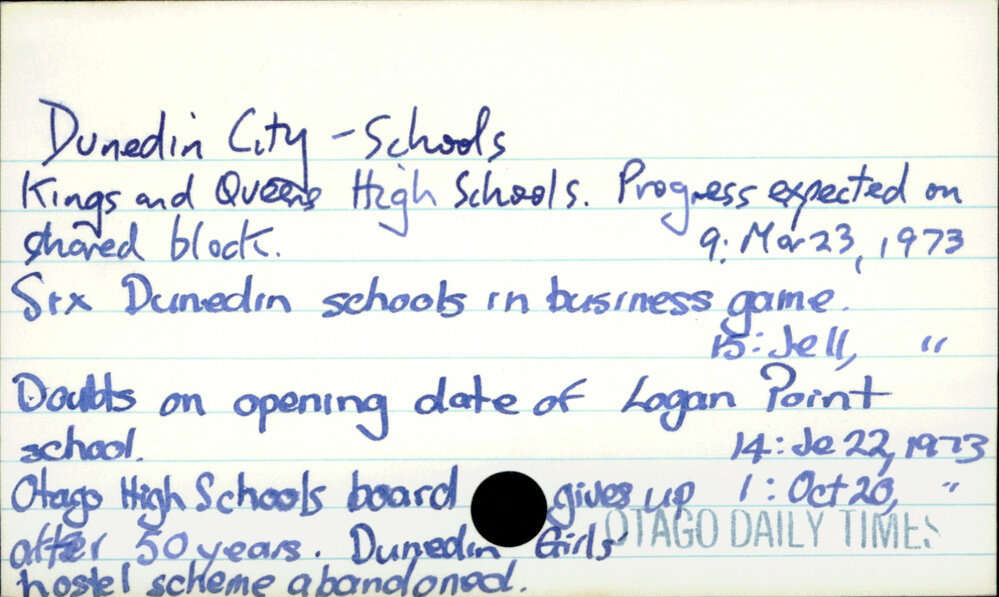 Dunedin City - Schools
Kings and Queens High Schools. Progress expected on
shared block. 9: Mar 23, 1973
Six Dunedin schools in business game.
15: Je 11, "
Doubts on opening date of Logan Point
school. 14: Je 22, 1973
Otago High Schools board gives up 1: Oct 20, "
after 50 years. Dunedin Girls'
OTAGO DAILY TIMES
hostel scheme abandoned.